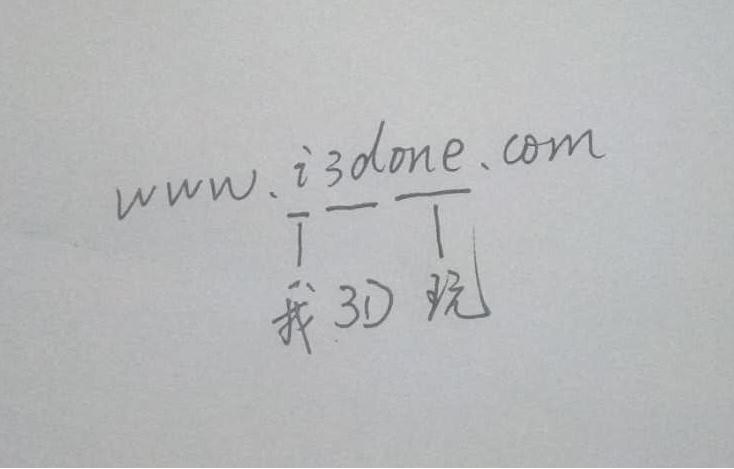 www.i3done.com
我 3D 玩